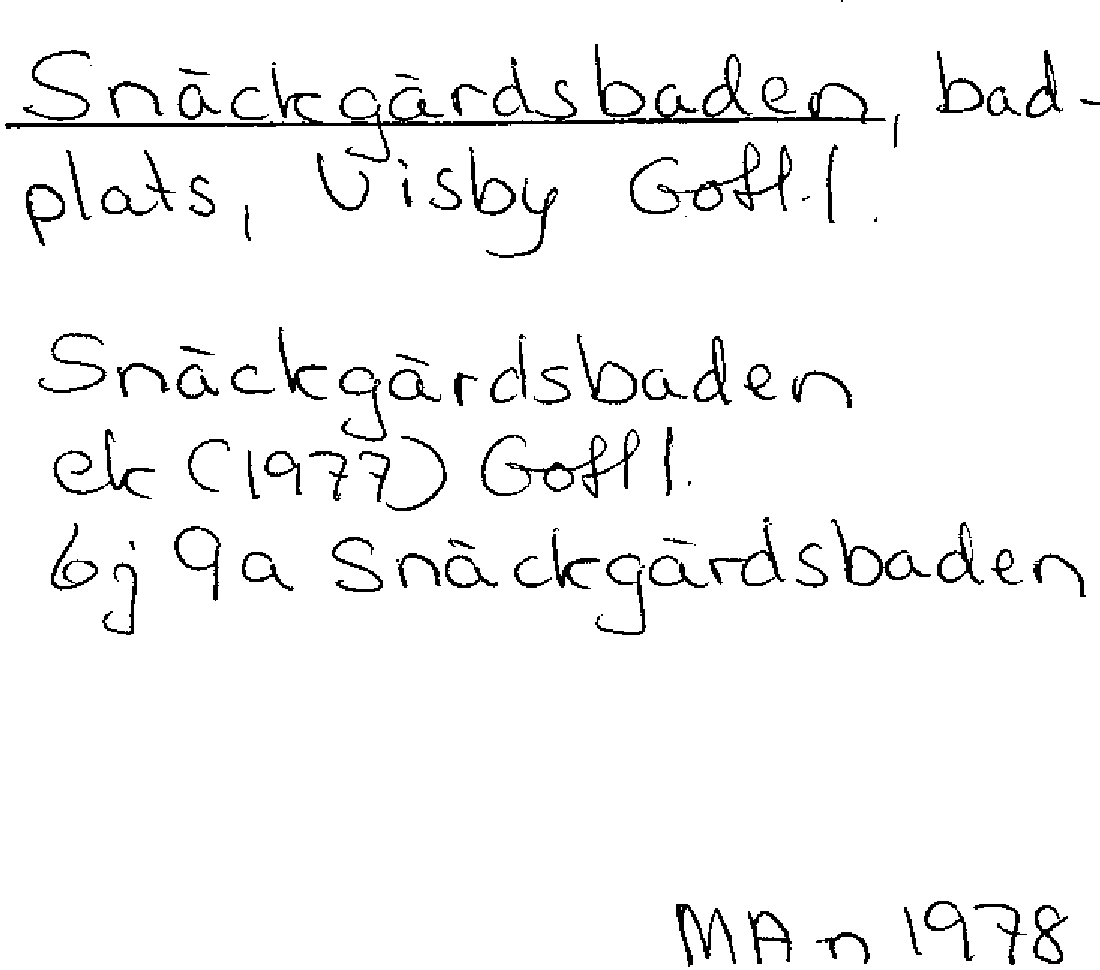 Snäckgärdsbaden, bad-
plats, Visby Gotl.
Snäckgärdsbaden
ek (1977) Gotl.
6j 9a Snäckgärdsbaden
MAn 1978